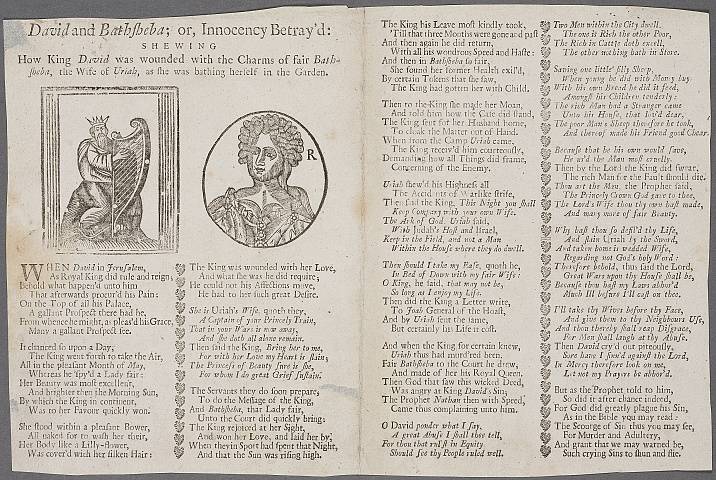 David and Bathsheba; or, Innocency Betray'd:
SHEWING
How King David was wounded with the Charms of fair Bath-
sheba, the Wife of Uriah, as she was bathing herself in the Garden.
R
WHEN David in Jerusalem,
As Royal King did rule and reign,
Behold what happen'd unto him
That afterwards procur'd his Pain:
On the Top of all his Palace,
A gallant Prospect there had he,
From whence he might, as pleas'd his Grace,
Many a gallant Prospect see.
It chanced so upon a Day,
The King went forth to take the Air,
All in the pleasant Month of May,
Whereas he 'spy'd a Lady fair:
Her Beauty was most excellent,
And brighter than the Morning Sun,
By which the King in continent,
Was to her Favour quickly won.
She stood within a pleasant Bower,
All naked for to wash her there,
Her Body like a Lilly-flower,
Was cover'd with her silken Hair:
The King was wounded with her Love,
And what she was he did require;
He could not his Affections move,
He had to her such great Desire.
She is Uriah's Wife, quoth they,
A Captain of your Princely Train,
That in your Wars is now away,
And she doth all alone remain.
Then said the King, Bring her to me,
For with her Love my Heart is slain;
The Princess of Beauty sure is she,
For whom I do great Grief sustain.
The Servants they do soon prepare,
To do the Message of the King,
And Bathsheba, that Lady fair,
Unto the Court did quickly bring:
The King rejoiced at her Sight,
And won her Love, and laid her by,
When they in Sport had spent that Night,
And that the Sun was rising high.
The King his Leave most kindly took,
'Till that three Months were gone and past
And then again he did return,
With all his wondrous Speed and Haste:
And then in Bathsheba so fair,
She found her former Health exil'd,
By certain Tokens that she saw,
The King had gotten her with Child.
Then to the King she made her Moan,
And told him how the Case did stand,
The King sent for her Husband home,
To cloak the Matter out of Hand.
When from the Camp Uriah came,
The King receiv'd him courteously,
Demanding how all Things did frame,
Concerning of the Enemy.
Uriah shew'd his Highness all
The Accidents of Warlike strife,
Then said the King, This Night you shall
Keep Company with your own Wife.
The Ark of God Uriah said,
With Judah's Host and Israel,
Keep in the Field, and not a Man
Within the House where they do dwell.
Then should I take my Ease, quoth he,
In Bed of Down with my fair Wife:
O King, he said, that may not be,
So long as I enjoy my Life.
Then did the King a Letter write,
To Joab General of the Hoast,
And by Uriah sent the same,
But certainly his Life it cost.
And when the King for certain knew,
Uriah thus had murd'red been,
Fair Bathsheba to the Court he drew,
And made of her his Royal Queen.
Then God that saw this wicked Deed,
Was angry at King David's Sin;
The Prophet Nathan then with Speed,
Came thus complaining unto him.
O David ponder what I say,
A great Abuse I shall thee tell,
For thou that rul'st in Equity
Should see thy People ruled well.
Two Men within the City dwell,
The one is Rich the other Poor,
The Rich in Cattle doth excell,
The other nothing hath in Store.
Saving one little silly Sheep,
When young he did with Money buy
With his own Bread he did it feed,
Amongst his Children tenderly:
The rich Man had a Stranger came
Unto his House, that lov'd dear,
The poor Man's Sheep therefore he took,
And thereof made his Friend good Chear.
Because that he his own would save,
He us'd the Man most cruelly.
Then by the Lord the King did swear,
The rich Man for the Fault should die.
Thou art the Man, the Prophet said,
The Princely Crown God gave to thee,
The Lord's Wife thou thy own hast made,
And many more of fair Beauty.
Why hast thou so defil'd thy Life,
And slain Uriah by the Sword,
And taken home is wedded Wife,
Regarding not God's holy Word:
Therefore behold, thus said the Lord,
Great Wars upon thy House shall be,
Because thou hast my Laws abhor'd
Much Ill before I'll cast on thee.
I'll take thy Wives before thy Face,
And give them to thy Neighbours Use,
And thou thereby shall reap Disgrace,
For Men shall laugh at thy Abuse.
Then David cry'd out piteously,
Sore have I sinn'd against the Lord,
In Mercy therefore look on me,
Let not my Prayers be abhor'd.
But as the Prophet told to him,
So did it after chance indeed,
For God did greatly plague his Sin,
As in the Bible you may read:
The Scourge of Sin thus you may see,
For Murder and Adultery,
And grant that we may warned be,
Such crying Sins to shun and flie.